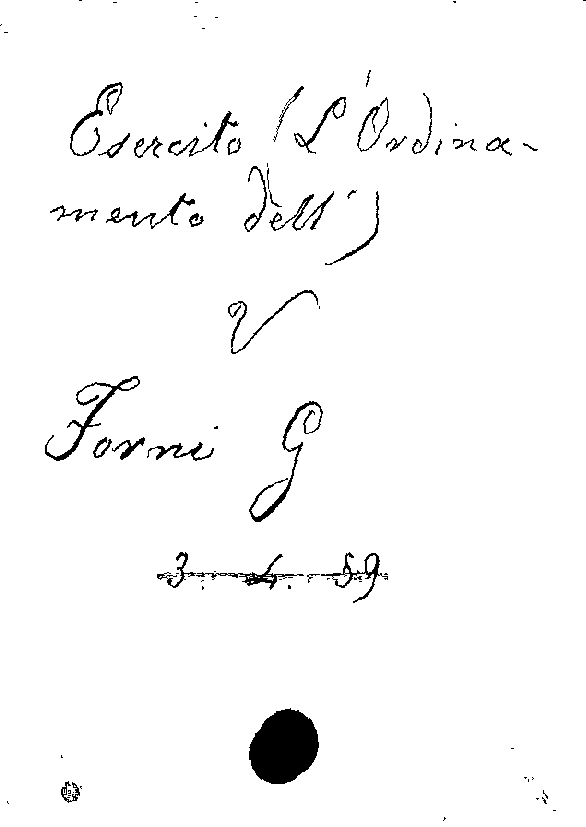 Esercito (L'Ordina-
mento dell')
V
Forni G
3. 4. 59